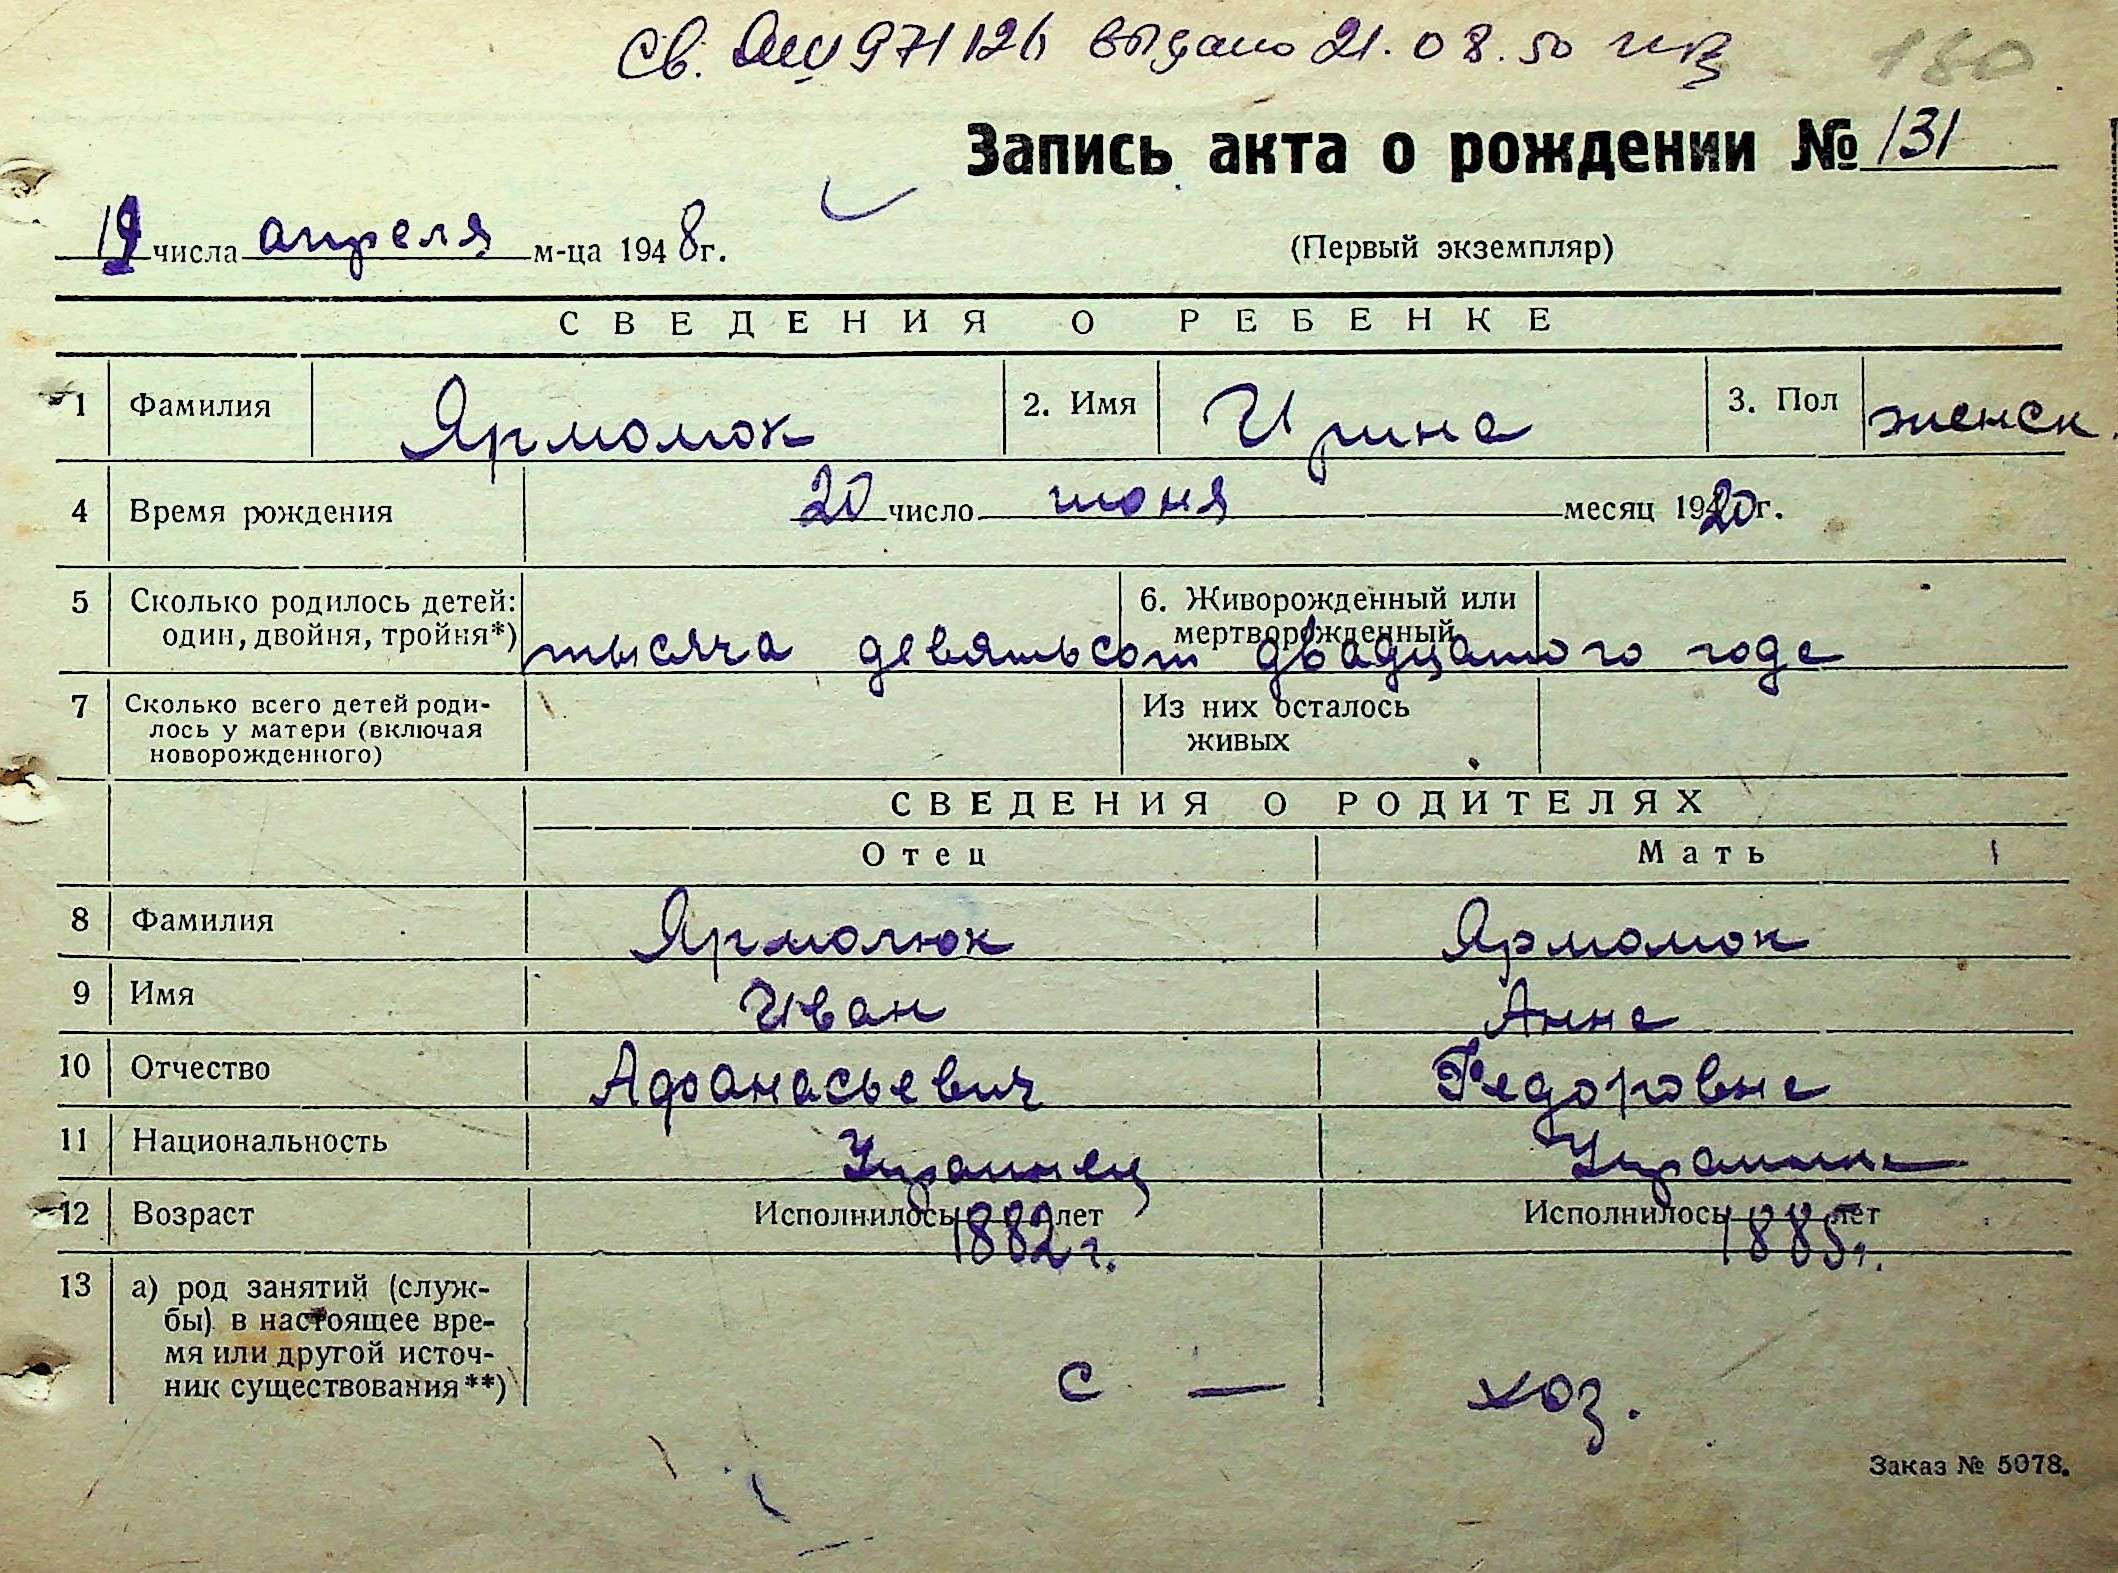 Св. 971126 выдано 21.08.50
180
Запись акта о рождении № 131
19 числа апреля м-ца 1948г.
(Первый экземпляр)
СВЕДЕНИЯ О РЕБЕНКЕ
1 Фамилия Ярмолюк 2. Имя Ирина 3. Пол женск.
4 Время рождения 20 число июня месяц 1920г.
5 Сколько родилось детей: 6. Живорожденный или
один, двойня, тройня*) мертворожденный
тысяча девятьсот двадцатого года
7 Сколько всего детей роди- Из них осталось
лось у матери (включая живых
новорожденного)
СВЕДЕНИЯ О РОДИТЕЛЯХ
Отец Мать
8 Фамилия Ярмолюк Ярмолюк
9 Имя Иван Анна
10 Отчество Афанасьевич Федоровна
11 Национальность Украинец Украинка
12 Возраст Исполнилось лет Исполнилось лет
1882г. 1885г.
13 а) род занятий (служ-
бы) в настоящее вре-
мя или другой источ-
ник существования**) с — хоз.
Заказ № 5078.